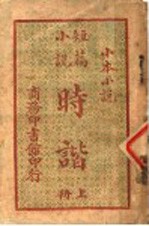 小本小說
短篇
小說
時諧
上冊
商務印書館印行